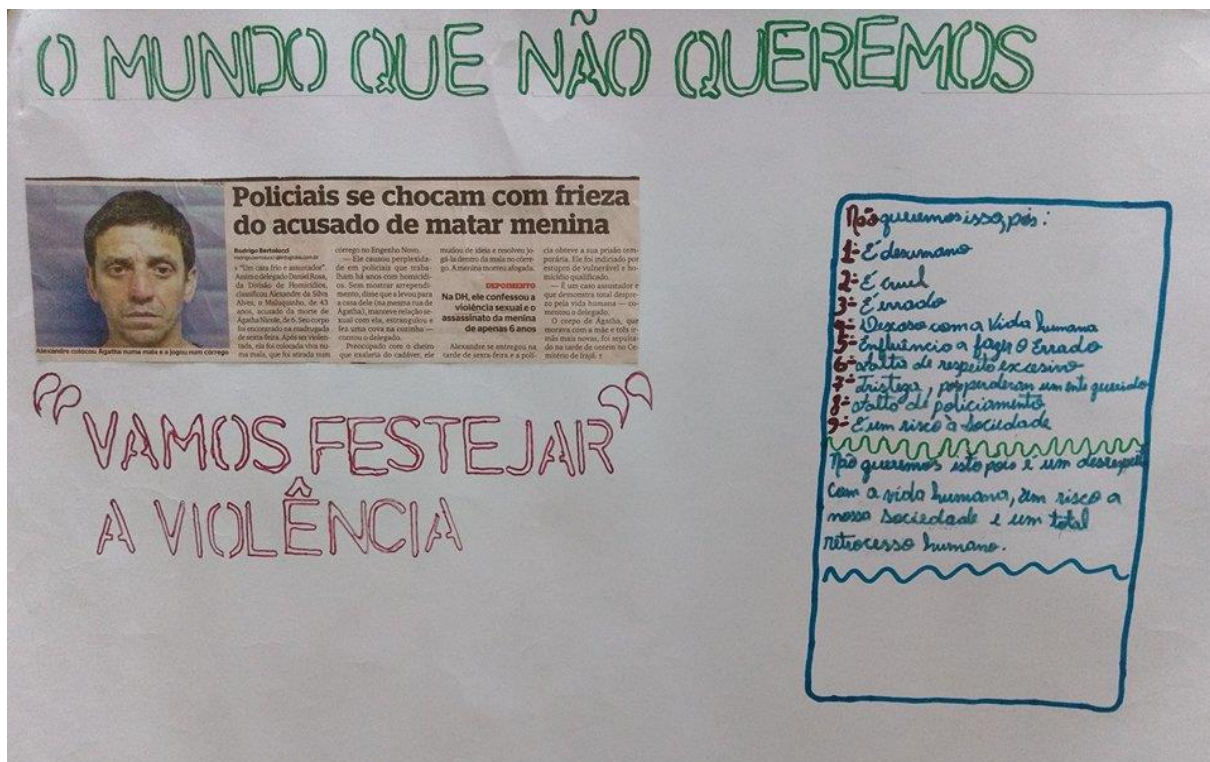 O MUNDO QUE NÃO QUEREMOS
Policiais se chocam com frieza
do acusado de matar menina
Rodrigo Bertolucci
"Um cara frio e assustador".
Assim o delegado Daniel Rosa,
da Divisão de Homicídios,
classificou Alexandre da Silva
Alves, o Maluquinho, de 43
anos, acusado da morte de
Ágatha Nicole, de 6. Seu corpo
foi encontrado na madrugada
de sexta-feira. Após ser violen-
tada, ela foi colocada viva nu-
ma mala, que foi atirada num
córrego no Engenho Novo.
— Ele causou perplexida-
de em policiais que traba-
lham há anos com homicídi-
os. Sem mostrar arrependi-
mento, disse que a levou para
a casa dele (na mesma rua de
Ágatha), manteve relação se-
xual com ela, estrangulou e
fez uma cova na cozinha —
contou o delegado.
Preocupado com o cheiro
que exalaria do cadáver, ele
mudou de ideia e resolveu jo-
gá-la dentro da mala no córre-
go. A menina morreu afogada.
DEPOIMENTO
Na DH, ele confessou a
violência sexual e o
assassinato da menina
de apenas 6 anos
Alexandre se entregou na
tarde de sexta-feira e a polí-
cia obteve a sua prisão tem-
porária. Ele foi indiciado por
estupro de vulnerável e ho-
micídio qualificado.
— É um caso assustador e
que demonstra total despre-
zo pela vida humana — co-
mentou o delegado.
O corpo de Ágatha, que
morava com a mãe e três ir-
mãs mais novas, foi sepulta-
do na tarde de ontem no Ce-
mitério de Irajá.
Alexandre colocou Ágatha numa mala e a jogou num córrego
"VAMOS FESTEJAR"
A VIOLÊNCIA
Não queremos isso, pois:
1- É desumano
2- É cruel
3- É errado
4- Descaso com a Vida humana
5- Influência a fazer o Errado
6- Falta de respeito excesivo
7- Tristeza, pois perderam um ente querido
8- Falta de policiamento
9- É um risco a Sociedade
Não queremos isto pois é um desrespeito
com a vida humana, um risco a
nossa Sociedade e um total
retrocesso humano.